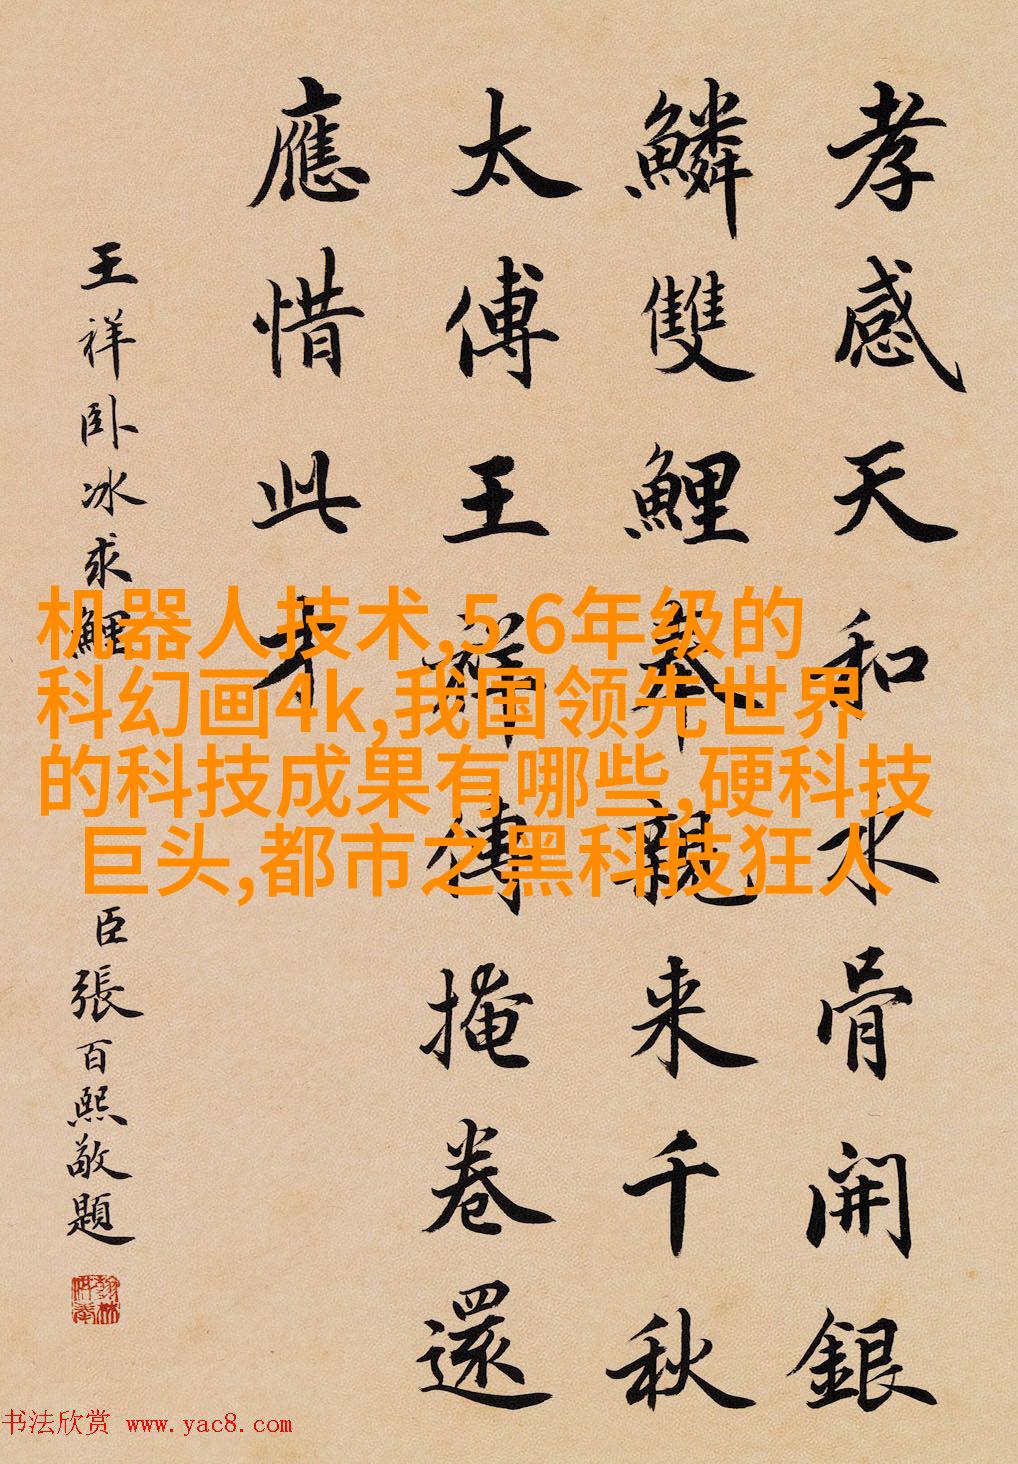 孝感天和水骨開銀
鱗雙鯉奉親来千秋
太傅王祥傳掩卷還
應惜此才
王祥卧冰求鯉
臣張百熙敬題
机器人技术,5 6年级的
科幻画4k,我国领先世界
的科技成果有哪些,硬科技
巨头,都市之黑科技狂人
书法欣赏 www.yac8.com